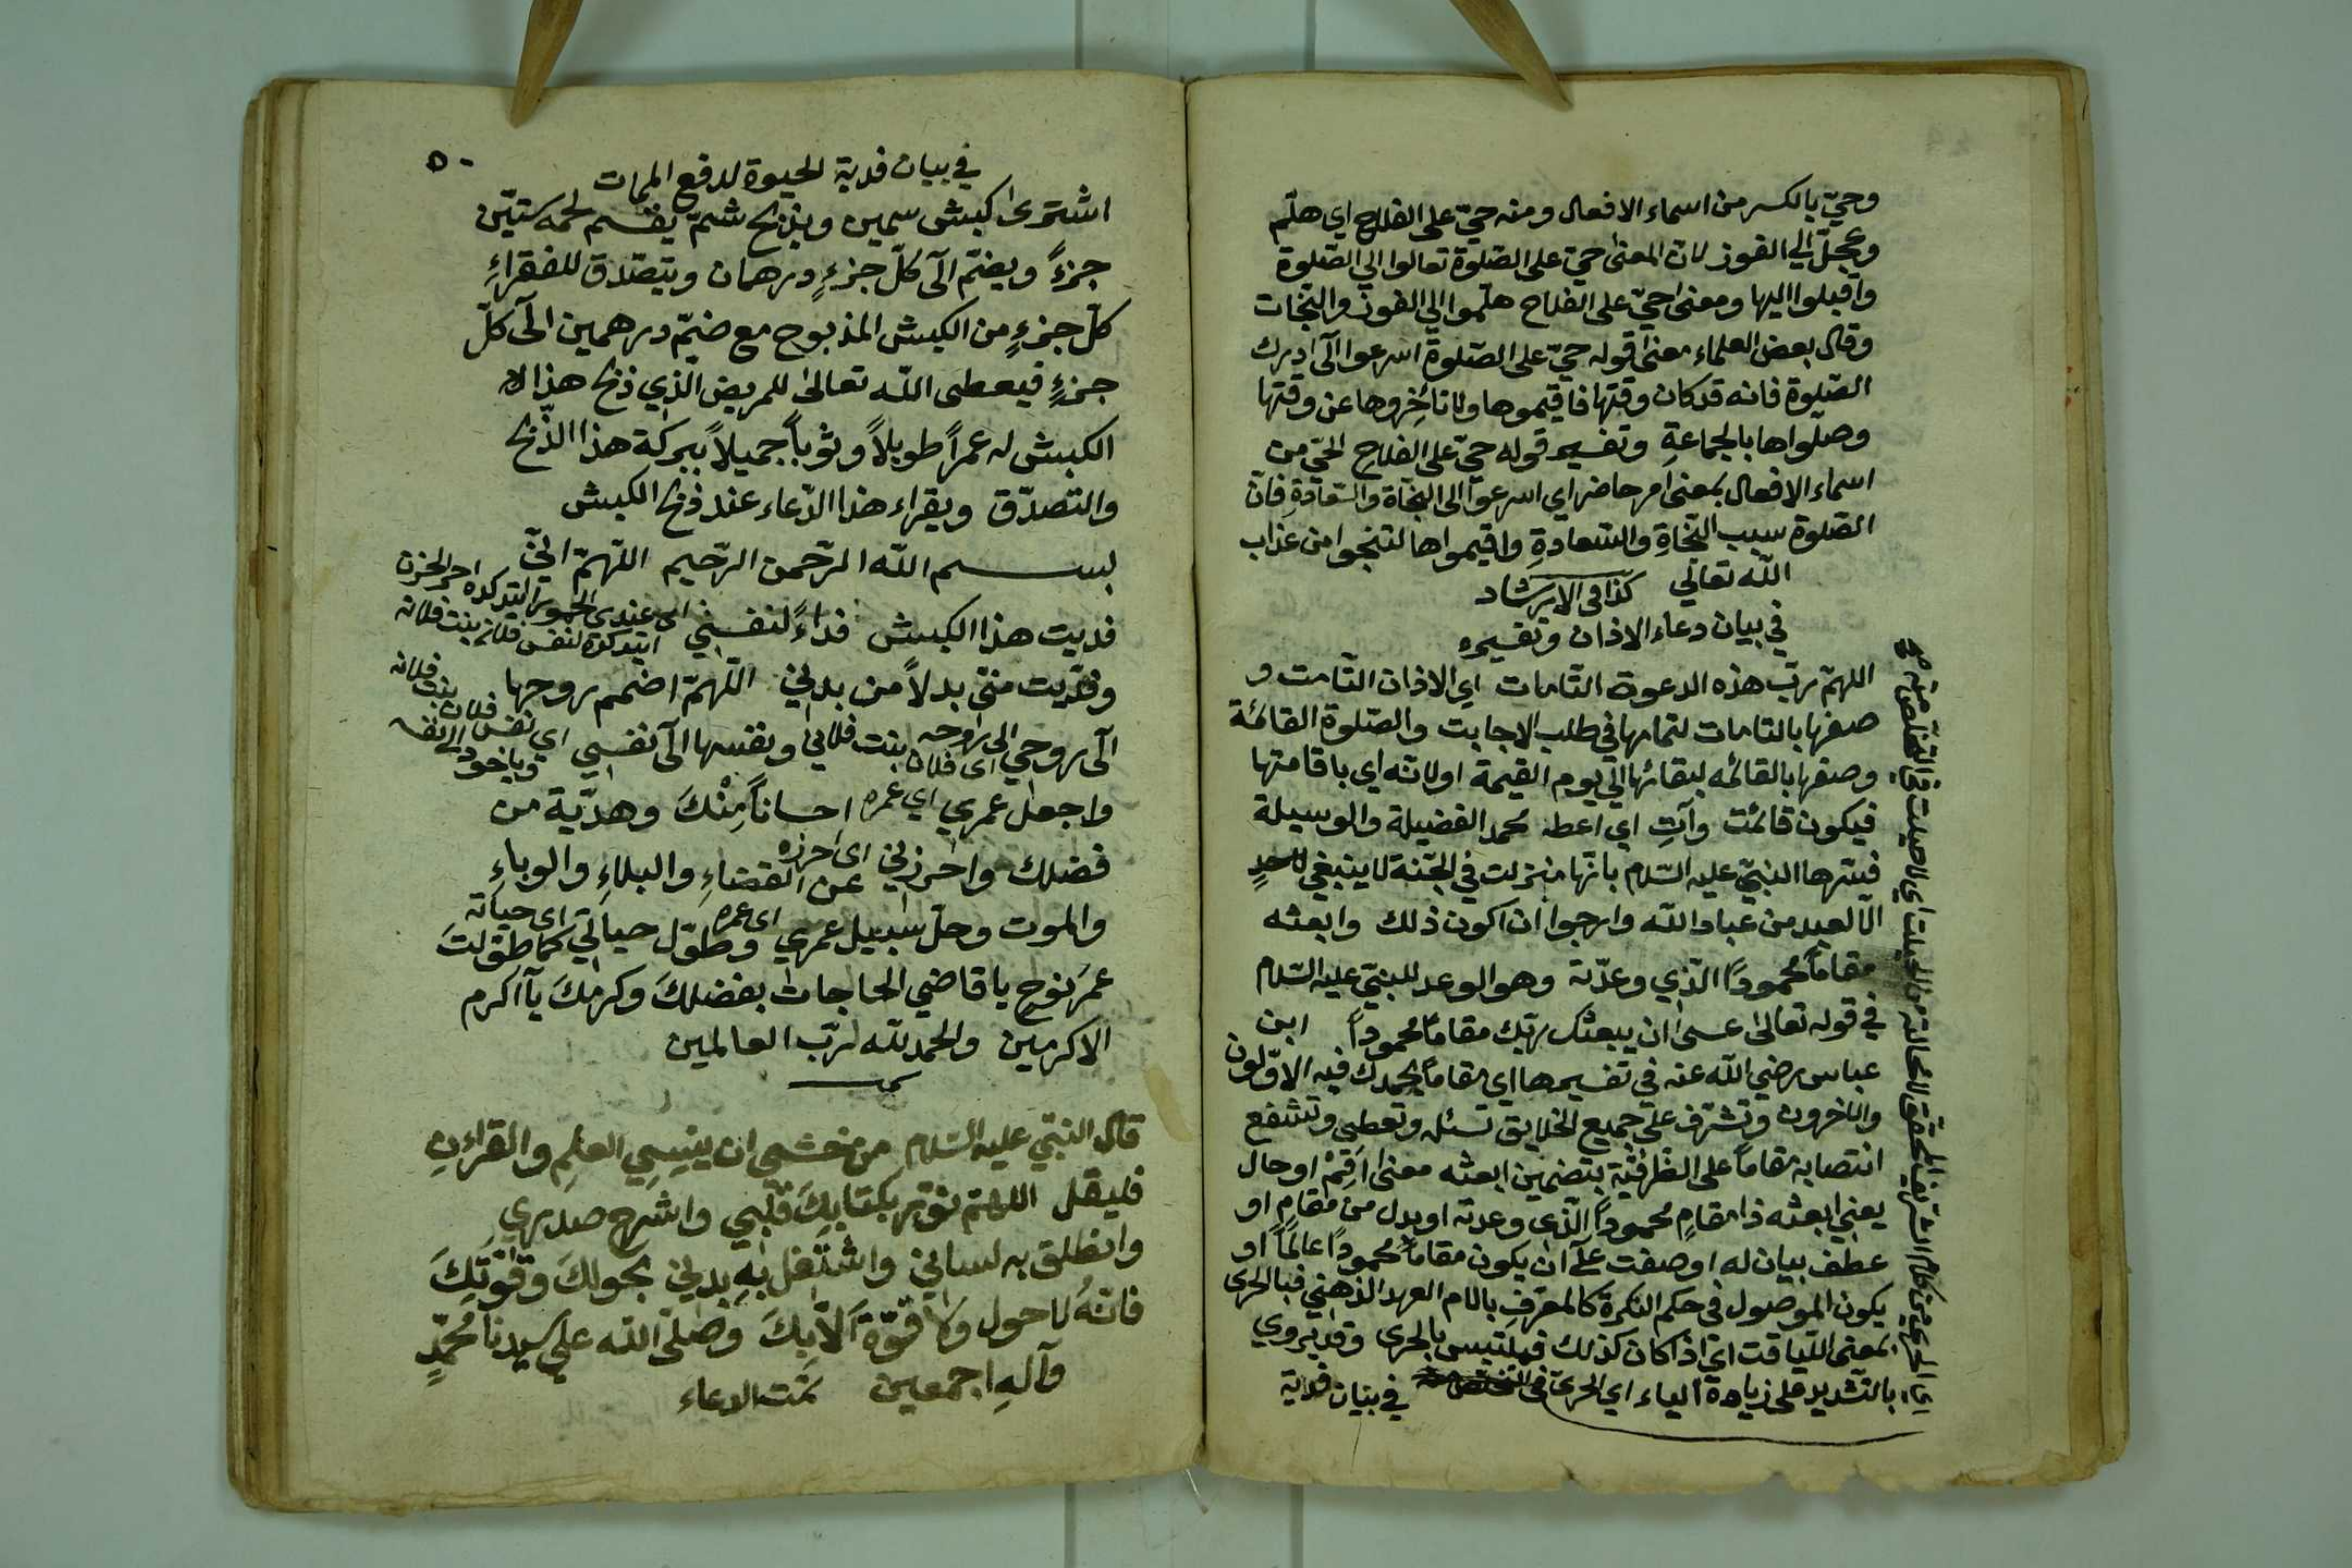 وحيّ بالكسر من اسماء الافعال ومنه حيّ على الفلاح اي هلّم
وعجّل الي الفوز لان المعنى حيّ على الصّلوة تعالوا الي الصّلوة
وأقبلوا اليها ومعنى حيّ على الفلاح هلّموا الي الفوز والنّجات
وقال بعض العلماء معنى قوله حيّ على الصّلوة اسرعوا الى ادرك
الصّلوة فانه قد كان وقتها فاقيموها ولا تأخِروها عن وقتها
وصلّواها بالجماعةِ وتفسير قوله حيّ على الفلاح الحيّ من
اسماء الافعال بمعنى امر حاضر اي اسرعوا الى النّجاة والسّعادةِ فانّ
الصّلوة سبب النّجاةِ والسّعادةِ واقيمواها لتنجوا من عذاب
الله تعالي كذا فى الارشاد
في بيان دعاء الاذان وتفسيره
اللهمّ ربّ هذه الدعوة التّامات اي الاذان التّامت و
صفها بالتامات لتمامها في طلب الاجابت والصّلوة القائمة
وصفها بالقائمه لبقائها الي يوم القيمة اولانه اي باقامتها
فيكون قائمت وآتِ اي اعطه محمد الفضيلة والوسيلة
فسّرها النبيّ عليه السّلام بانّها منزلت في الجّنة لا ينبغي لاحدٍ
الّا لعبد من عباد الله وارجوا ان اكون ذلك وابعثه
مقاماً محموداً الّذي وعدّته وهو الوعد للنبيّ عليه السّلام
في قوله تعالى عسى ان يبعثك ربّك مقاماً محموداً ابن
عباس رضي الله عنه في تفسيرها اي مقاماً يحمدك فيه الاوّلون
والاخرون وتشرّف على جميع الخلايق تسئل وتعطى وتشفع
انتصابه مقاماً على الظرفيّة بتضمين ابعثه معنى اَقِمْ او حال
يعني ابعثه ذا مقامٍ محموداً الّذي وعدته او بدل من مقامٍ او
عطف بيان له او صفت على ان يكون مقاماً محموداً عالماً او
يكون الموصول في حكم النكرة كالمعرّفِ بالام العهد الذهني فبا الحرى
بمعنى اللّياقت اي اذا كان كذلك فيلتبس بالحرى وقد يروي
بالتّشديد على زيادة الياء اي الحرىّ
في بيان فدية
٥٠
في بيان فدية الحيوة لدفع الممات
اشترى كبش سمين ويذبح شمّ يقسم لحمه ستيّن
جزءً ويضمّ الى كلّ جزءٍ درهمان ويتصّدق للفقراءِ
كلّ جزءٍ من الكبش المذبوح مع ضمّ درهمين الى كلّ
جزءٍ فيعطى الله تعالى للمريض الّذي ذبح هذا لا
الكبش له عمراً طويلاً وثوباً جميلاً ببركة هذا الذّبح
والتصدّق ويقراء هذا الدّعاء عند ذبح الكبش
بسم الله الرّحمن الرّحيم اللّهمّ انّي
فديت هذا الكبش فداءً لنفسي
وفدّيت منّي بدلاً من بدني اللّهمّ اضمم روحها
الى روحي الى روحه اى فلان بنت فلاني ونفسها الى نفسي
واجعل عمري اي عمره احساناً مِنْكَ وهدّية من
فضلك واحرزني اى احرزه عن القضاءِ والبلاءِ والوباءِ
والموت وحلّ سبيل عمري اى عمره وطوّل حياتي اى حياته كما طوّلتَ
عمرَ نوح يا قاضي الحاجات بفضلكَ وكرمكَ يآ اكرم
الاكرمين والحمد لله لربّ العالمين
قال النبّي عليه السّلام من خشي ان ينسِي العلمِ والقراءنِ
فليقل اللهمّ نوّر بكتابِكَ قلبي واشرح صدري
وانطلق به لساني واشتغل بهِ بدني بحولكَ وقوّتِكَ
فانّهُ لا حول ولا قوّة الّا بكَ وصلّى الله على سيدنا محمّدٍ
وآلهِ اجمعين تمّت الدعاء